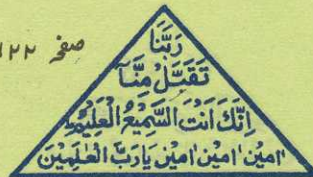 صفحہ ۱۲۲
رَبَّنَا
تَقَبَّلْ مِنَّآ
اِنَّكَ اَنْتَ السَّمِيْعُ الْعَلِيْمُ
اٰمِيْن اٰمِيْن اٰمِيْن يَارَبَّ الْعٰلَمِيْنَ